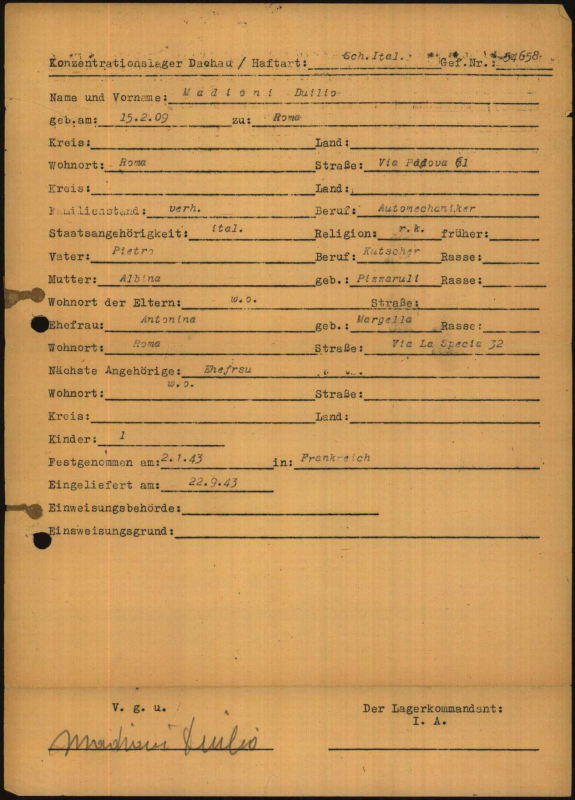 Konzentrationslager Dachau / Haftart: Sch.Ital. Gef.Nr.: 54658
Name und Vorname: Madioni Duilio
geb.am: 15.2.09 zu: Roma
Kreis: Land:
Wohnort: Roma Straße: Via Padova 61
Kreis: Land:
Familienstand: verh. Beruf: Automechaniker
Staatsangehörigkeit: ital. Religion: r.k. früher:
Vater: Pietro Beruf: Kutscher Rasse:
Mutter: Albina geb.: Pizzaruli Rasse:
Wohnort der Eltern: w.o. Straße:
Ehefrau: Antonina geb.: Margella Rasse:
Wohnort: Roma Straße: Via La Specia 32
Nächste Angehörige: Ehefrau
Wohnort: w.o. Straße:
Kreis: Land:
Kinder: 1
Festgenommen am: 2.1.43 in: Frankreich
Eingeliefert am: 22.9.43
Einweisungsbehörde:
Einsweisungsgrund:
V. g. u. Der Lagerkommandant:
I. A.
Madioni Duilio